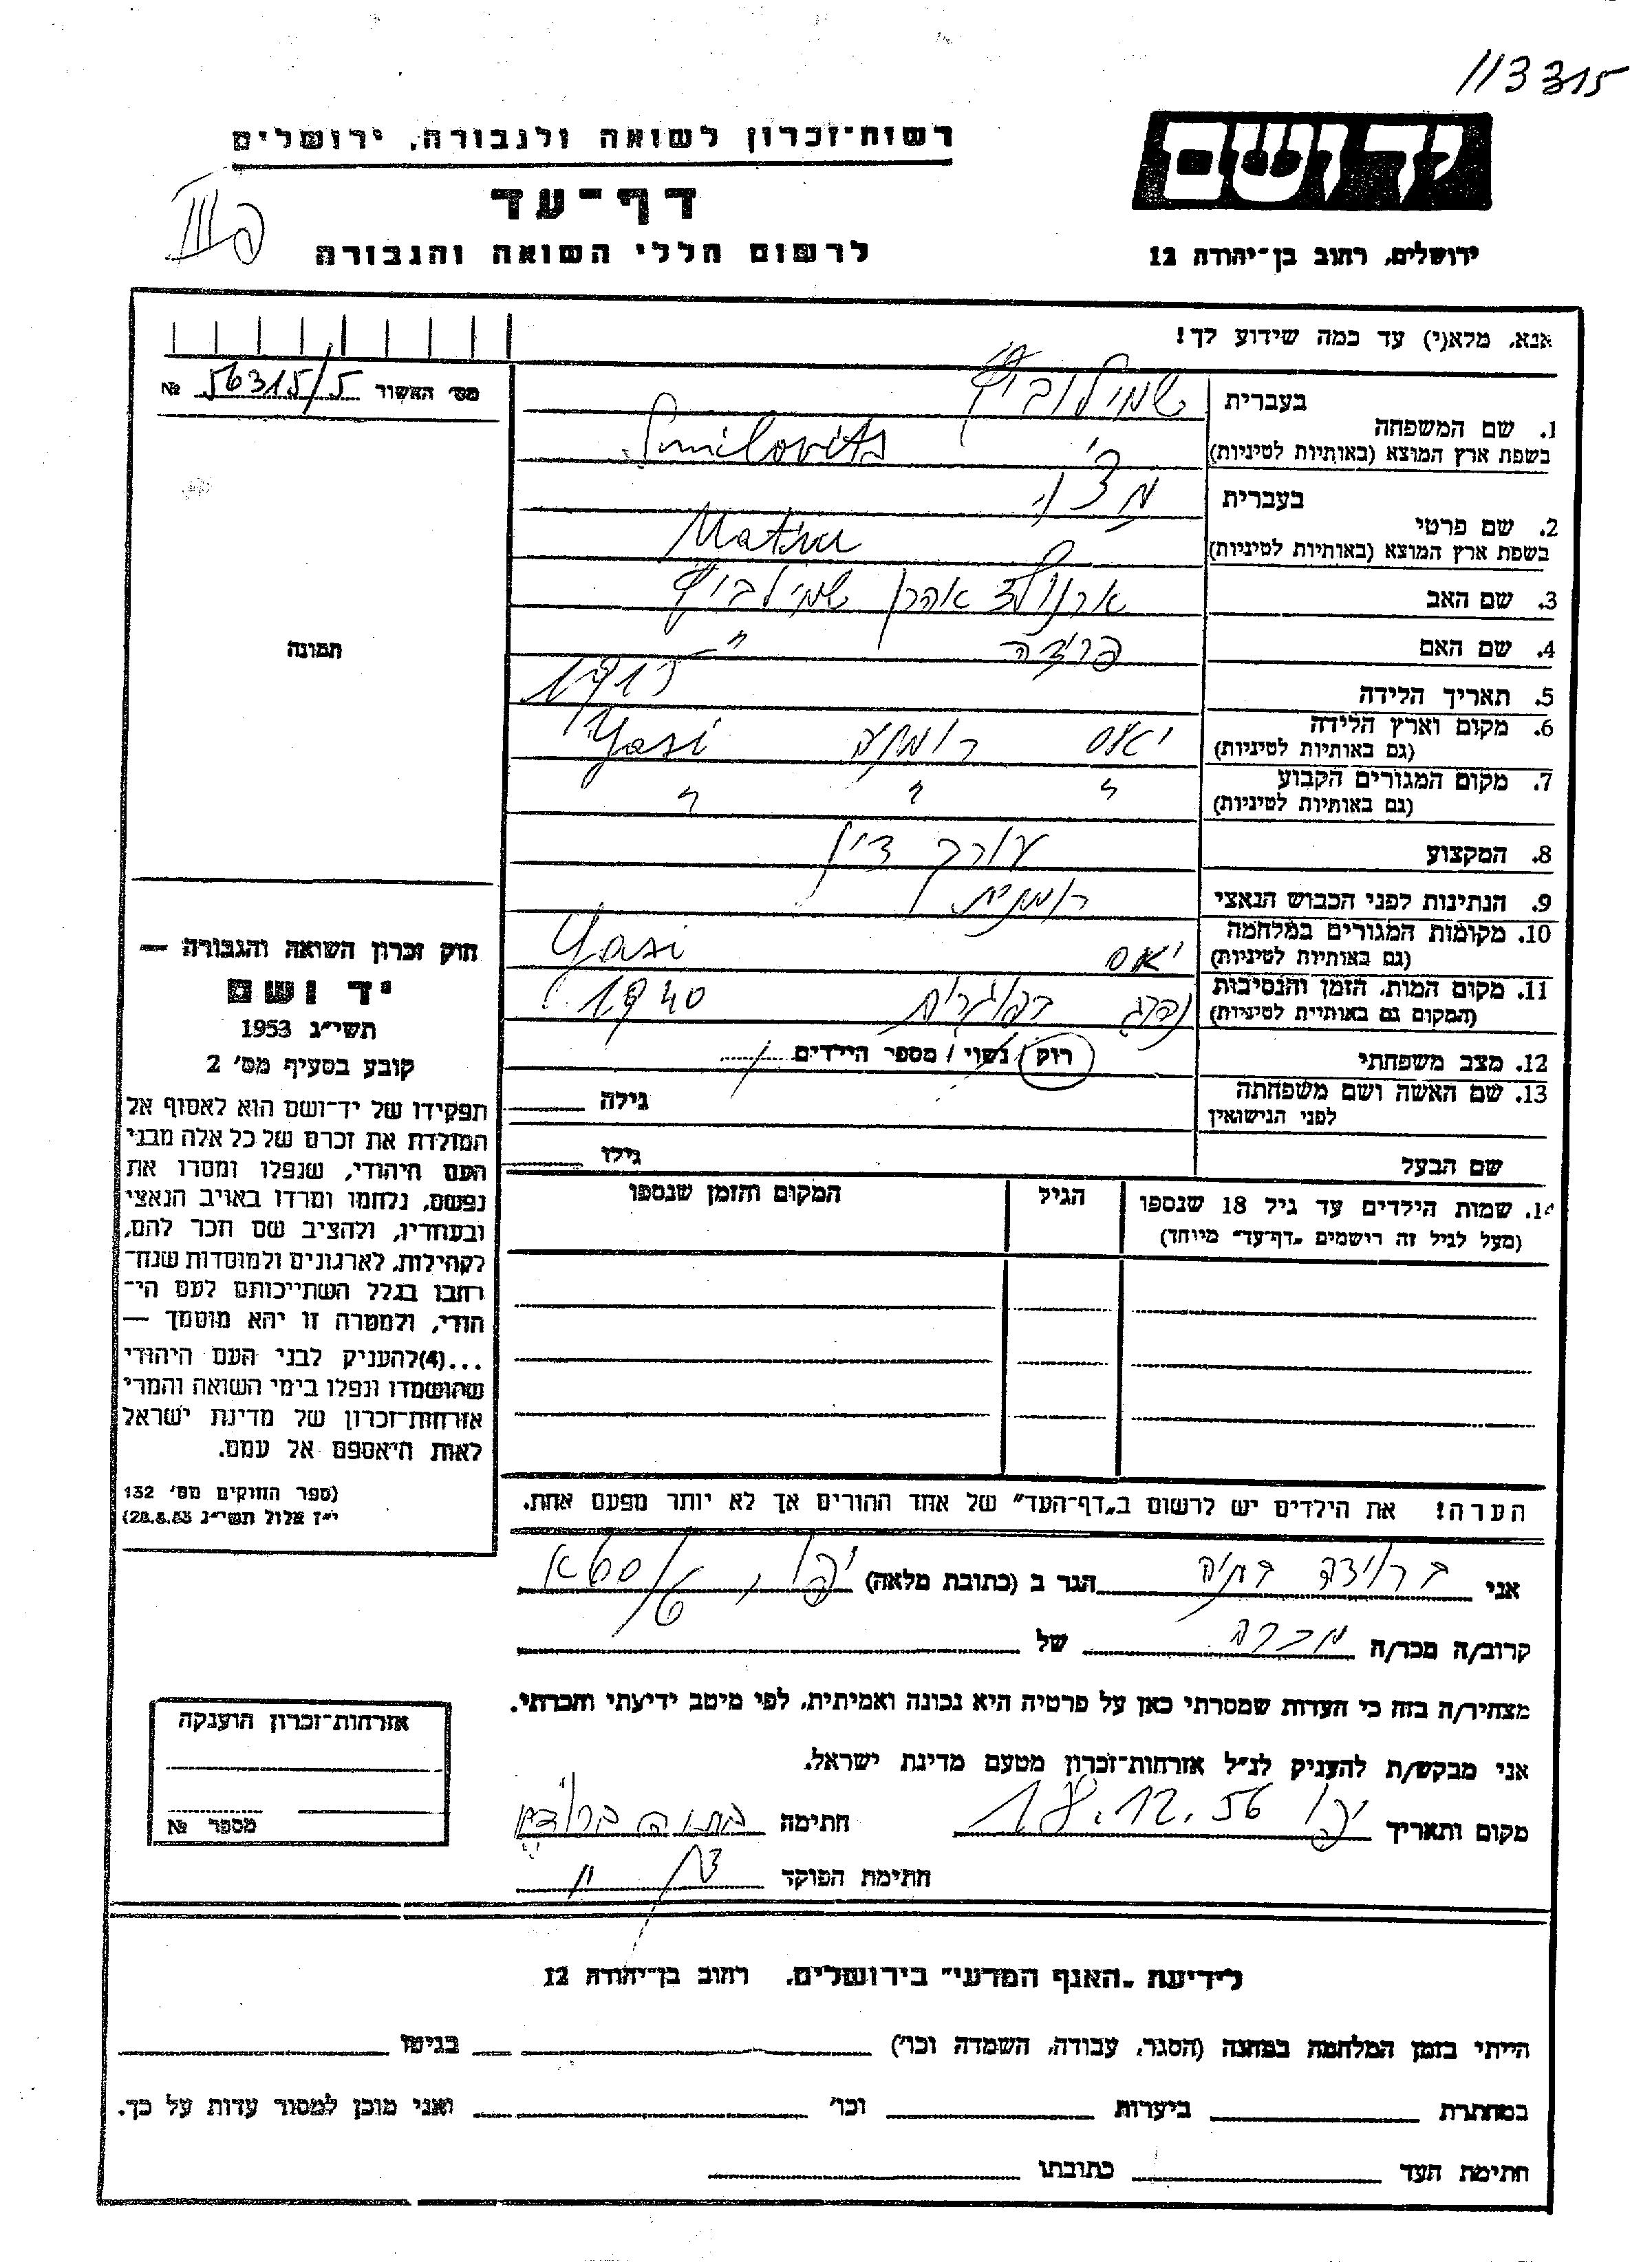 113315
יד ושם
רשות־זכרון לשואה ולגבורה, ירושלים
דף־עד
לרשום חללי השואה והגבורה
ירושלים, רחוב בן־יהודה 12
אנא, מלא(י) עד כמה שידוע לך!
מס׳ האשור 56315/5 №
תמונה
1. שם המשפחה
בעברית שמילוביץ
בשפת ארץ המוצא (באותיות לטיניות) Smilovits
2. שם פרטי
בעברית
בשפת ארץ המוצא (באותיות לטיניות)
3. שם האב ארנולד אהרן שמילוביץ
4. שם האם פרידה "
5. תאריך הלידה 1915
6. מקום וארץ הלידה יאס רומניה Yasi
(גם באותיות לטיניות)
7. מקום המגורים הקבוע " " "
(גם באותיות לטיניות)
8. המקצוע עורך דין
9. הנתינות לפני הכבוש הנאצי רומנית
10. מקומות המגורים במלחמה יאס Yasi
(גם באותיות לטיניות)
11. מקום המות, הזמן והנסיבות נהרג בפוגרום 1940
(המקום גם באותיות לטיניות)
12. מצב משפחתי רוק / נשוי / מספר הילדים
13. שם האשה ושם משפחתה גילה
לפני הנישואין
שם הבעל גילו
14. שמות הילדים עד גיל 18 שנספו הגיל המקום והזמן שנספו
(מעל לגיל זה רושמים „דף־עד" מיוחד)
הערה! את הילדים יש לרשום ב„דף־העד" של אחד ההורים אך לא יותר מפעם אחת.
חוק זכרון השואה והגבורה —
יד ושם
תשי״ג 1953
קובע בסעיף מס׳ 2
תפקידו של יד־ושם הוא לאסוף אל
המולדת את זכרם של כל אלה מבני
העם היהודי, שנפלו ומסרו את
נפשם, נלחמו ומרדו באויב הנאצי
ובעוזריו, ולהציב שם וזכר להם,
לקהילות, לארגונים ולמוסדות שנח־
רבו בגלל השתייכותם לעם הי־
הודי, ולמטרה זו יהא מוסמך —
...(4)להעניק לבני העם היהודי
שהושמדו ונפלו בימי השואה והמרי
אזרחות־זכרון של מדינת ישראל
לאות היאספם אל עמם.
(ספר החוקים מס׳ 132
י״ז אלול תשי״ג 28.8.53)
אני הגר ב (כתובת מלאה) יפו,
קרוב/ה מכר/ה מכרה של
מצהיר/ה בזה כי העדות שמסרתי כאן על פרטיה היא נכונה ואמיתית, לפי מיטב ידיעתי והכרתי.
אני מבקש/ת להעניק לנ״ל אזרחות־זכרון מטעם מדינת ישראל.
מקום ותאריך יפו 18.12.56 חתימה
חתימת הפוקד
אזרחות־זכרון הוענקה
מספר №
לידיעת „האגף המדעי" בירושלים. רחוב בן־יהודה 12
הייתי בזמן המלחמה במחנה (הסגר, עבודה, השמדה וכו׳) בגיטו
במחתרת ביערות וכו׳ ואני מוכן למסור עדות על כך.
חתימת העד כתובתו